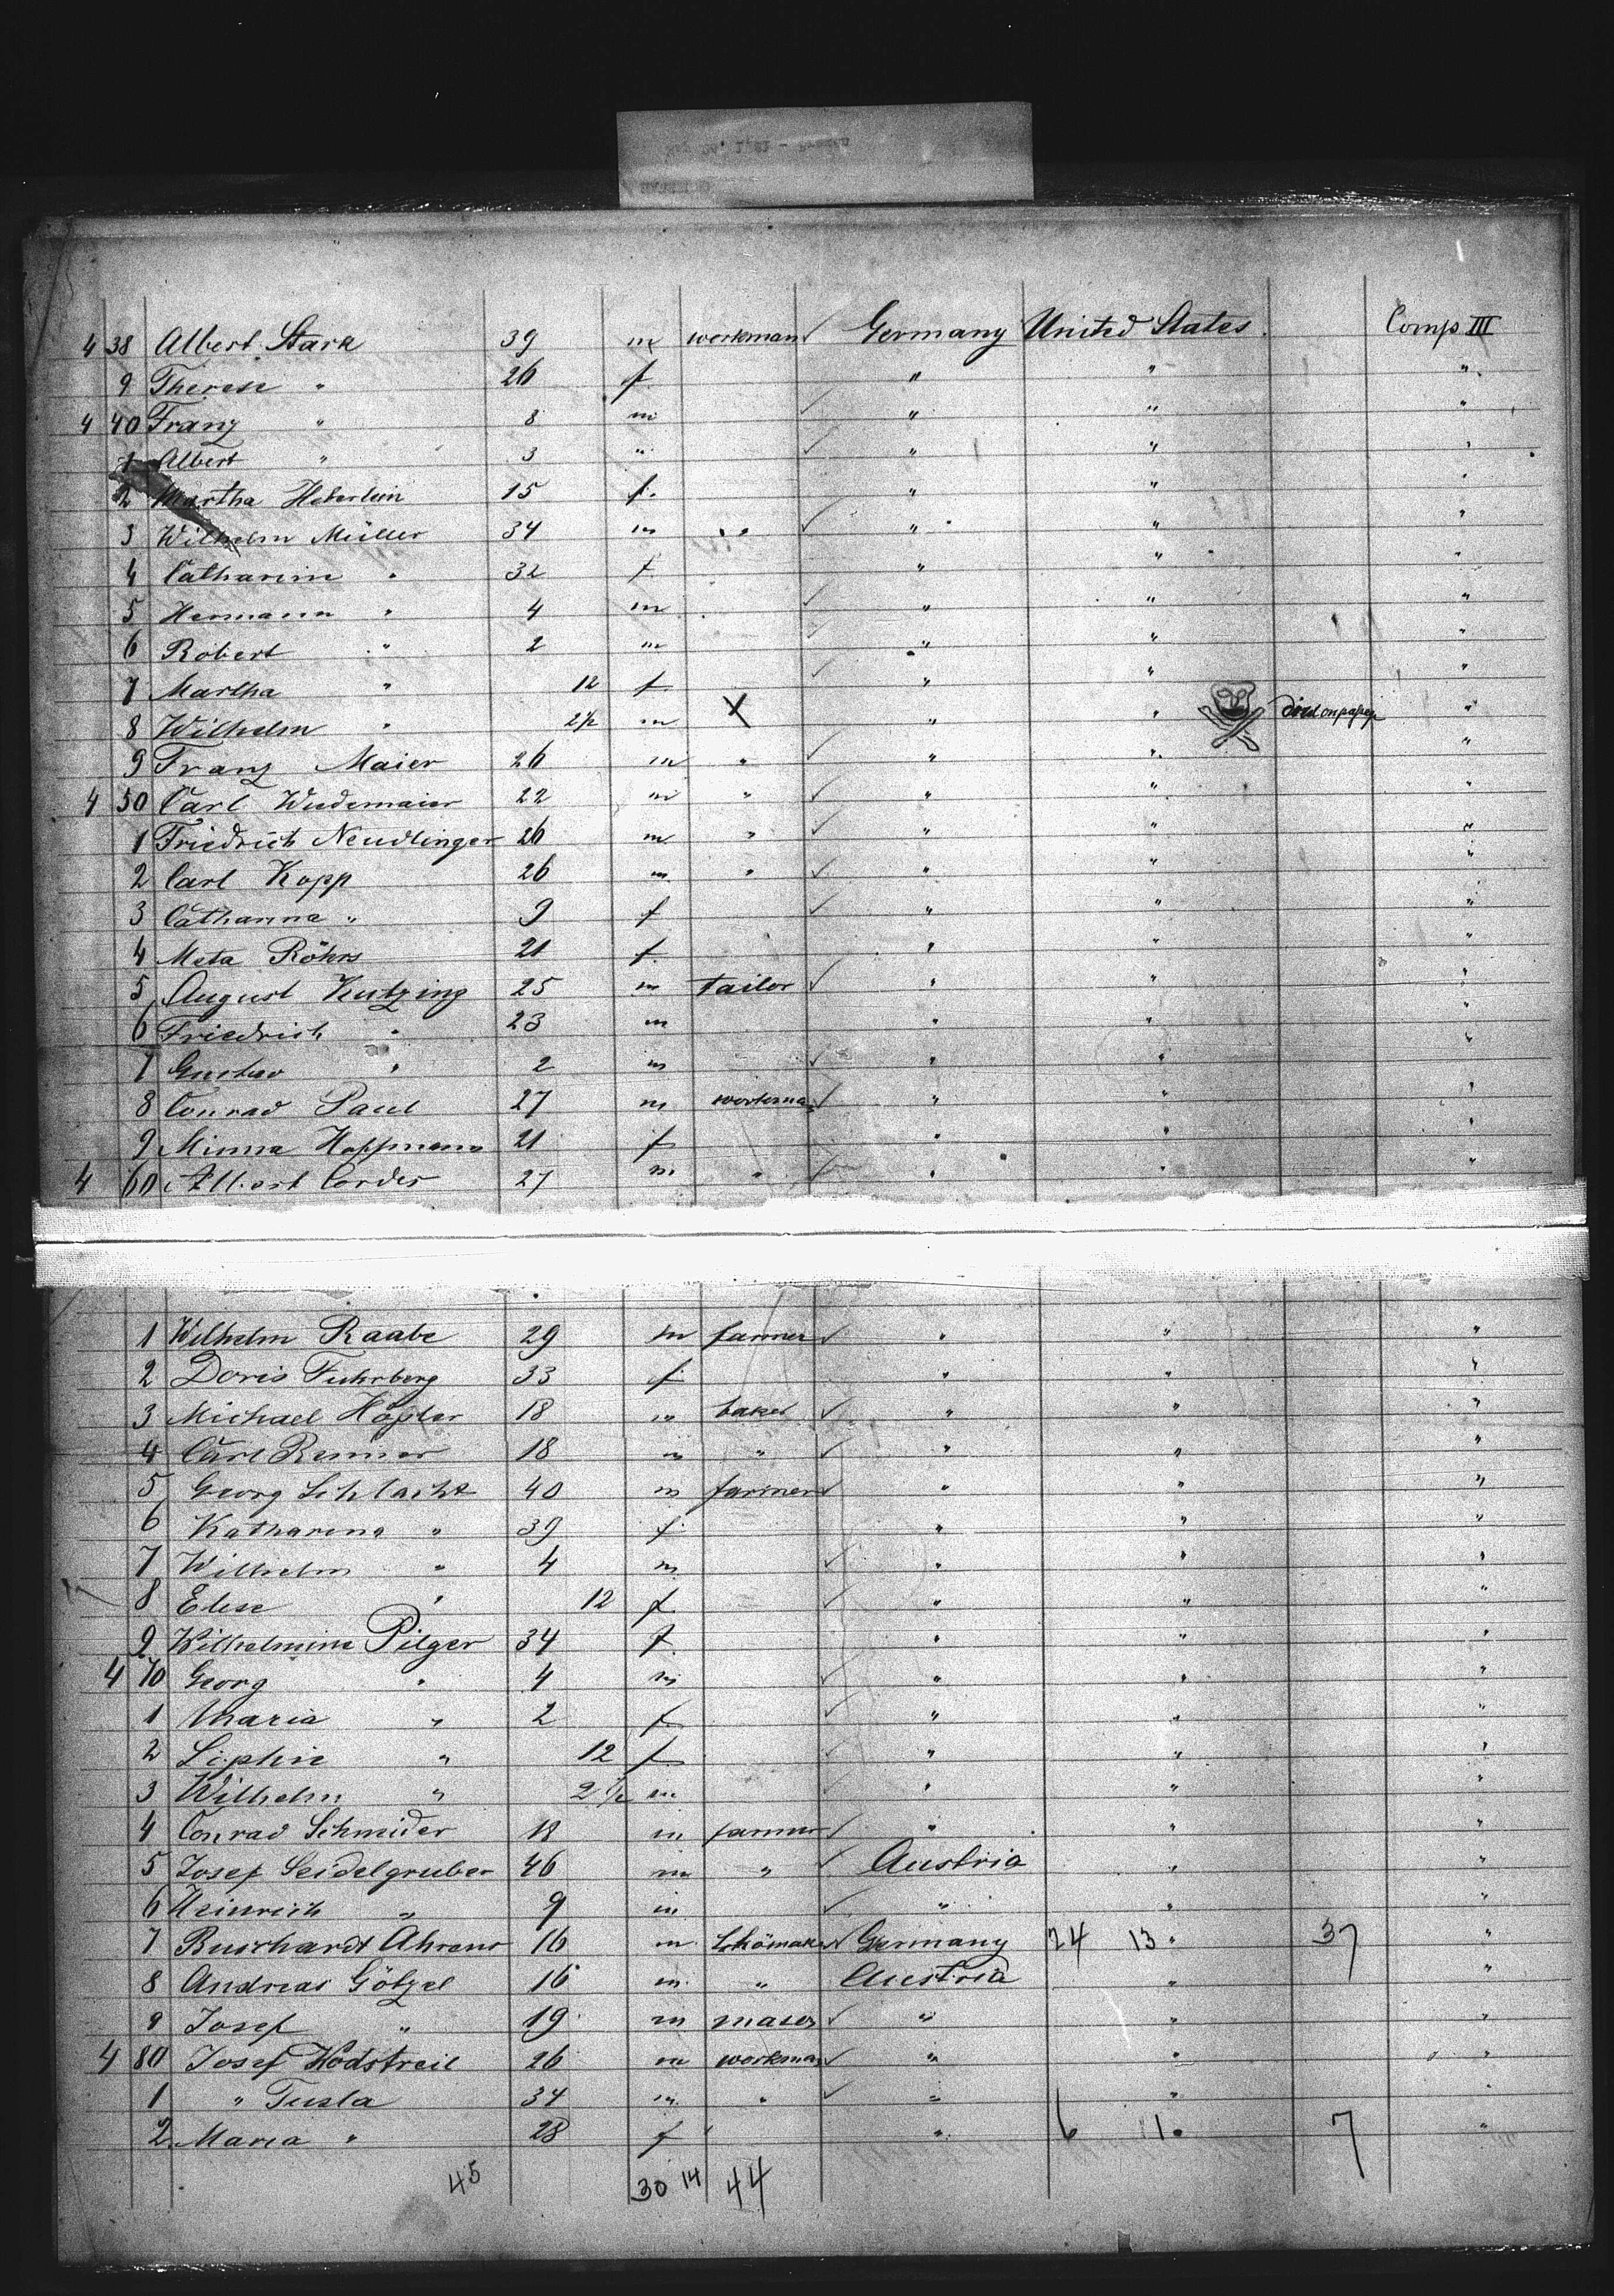 4 38 Albert Stark 39 m workman Germany United States. Comp III
9 Therese " 26 f. " " "
4 40 Franz " 8 m " " "
1 Albert " 3 " " " "
2 Martha Heberlein 15 f. " " "
3 Wilhelm Müller 34 m " " " "
4 Catharine " 32 f. " " "
5 Hermann " 4 m " " "
6 Robert " 2 m " " "
7 Martha " 12 f. " " "
8 Wilhelm " 2 1/2 m X " " died "
9 Franz Maier 26 m " " " "
4 50 Carl Wiedemaier 22 m " " " "
1 Friedrich Neudlinger 26 m " " " "
2 Carl Kopp 26 m " " " "
3 Catharina " 9 f " " "
4 Meta Röhrs 21 f. " " "
5 August Kutzing 25 m tailor " " "
6 Friedrich " 23 m " " "
7 Gustav " 2 m " " "
8 Conrad Paul 27 m workman " " "
9 Minna Hoffmann 21 f " " "
4 60 Albert Cordes 27 m " " " "
1 Wilhelm Raabe 29 m farmer " " "
2 Doris Fuhrberg 33 f " " "
3 Michael Höfler 18 m baker " " "
4 Carl Renner 18 m " " " "
5 Georg Schlacht 40 m farmer " " "
6 Katharina " 39 f " " "
7 Wilhelm " 4 m " " "
8 Elise " 12 f. " " "
9 Wilhelmine Pilger 34 f. " " "
4 70 Georg " 4 m " " "
1 Maria " 2 f " " "
2 Sophie " 12 f " " "
3 Wilhelm " 2 1/2 m " " "
4 Conrad Schmider 18 m farmer " " "
5 Josef Seidelgruber 46 m " Austria " "
6 Heinrich " 9 m " " "
7 Burchardt Ahrens 16 m Germany 24 13 " 37 "
8 Andreas Götzel 16 m " Austria " "
9 Josef " 19 m " " "
4 80 Josef Hodstreil 26 m workman " " "
1 " Tusla 34 m " " " "
2 Maria " 28 f " 6 1 " 7 "
45 30 14 44